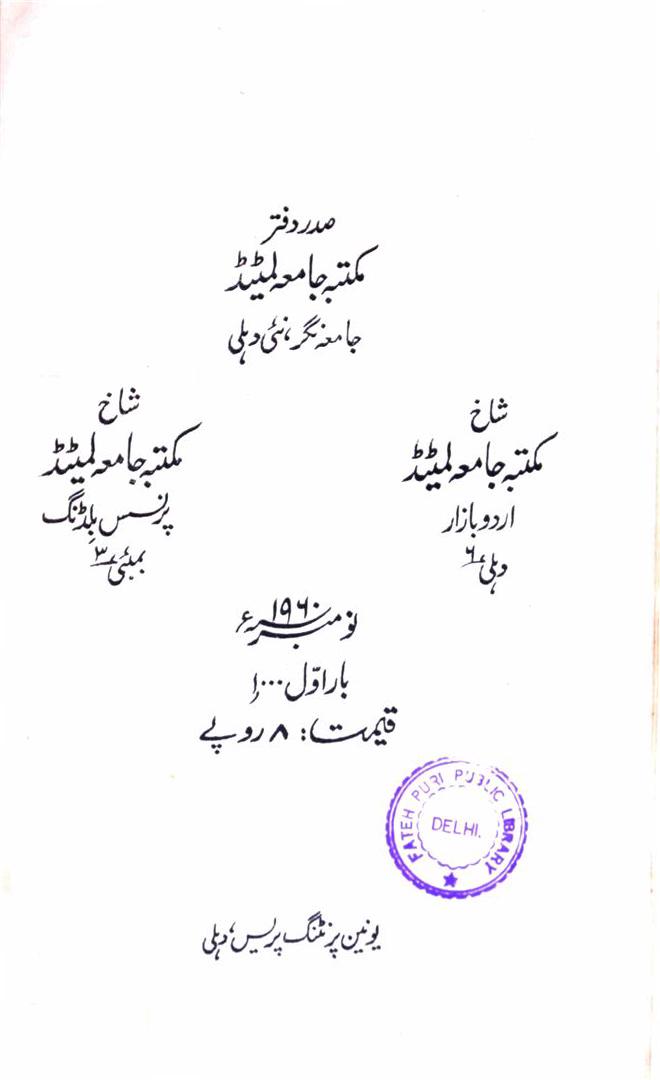 صدر دفتر
مکتبہ جامعہ لمیٹیڈ
جامعہ نگر، نئی دہلی
شاخ
مکتبہ جامعہ لمیٹڈ
اردو بازار
دہلی ۶
شاخ
مکتبہ جامعہ لمیٹڈ
پرنسس بلڈنگ
بمبئی ۳
نومبر ۱۹۶۰ء
بار اوّل ۱۰۰۰
قیمت: ۸ روپے
FATEH PURI PUBLIC LIBRARY
DELHI.
یونین پرنٹنگ پریس، دہلی